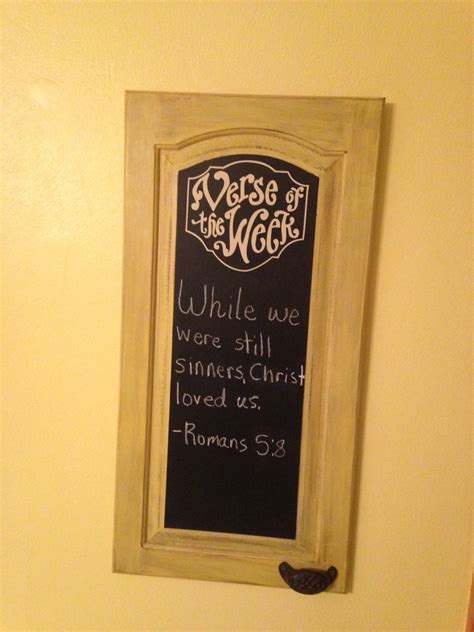 Verse of
the Week
While we
were still
sinners, Christ
loved us.
-Romans 5:8